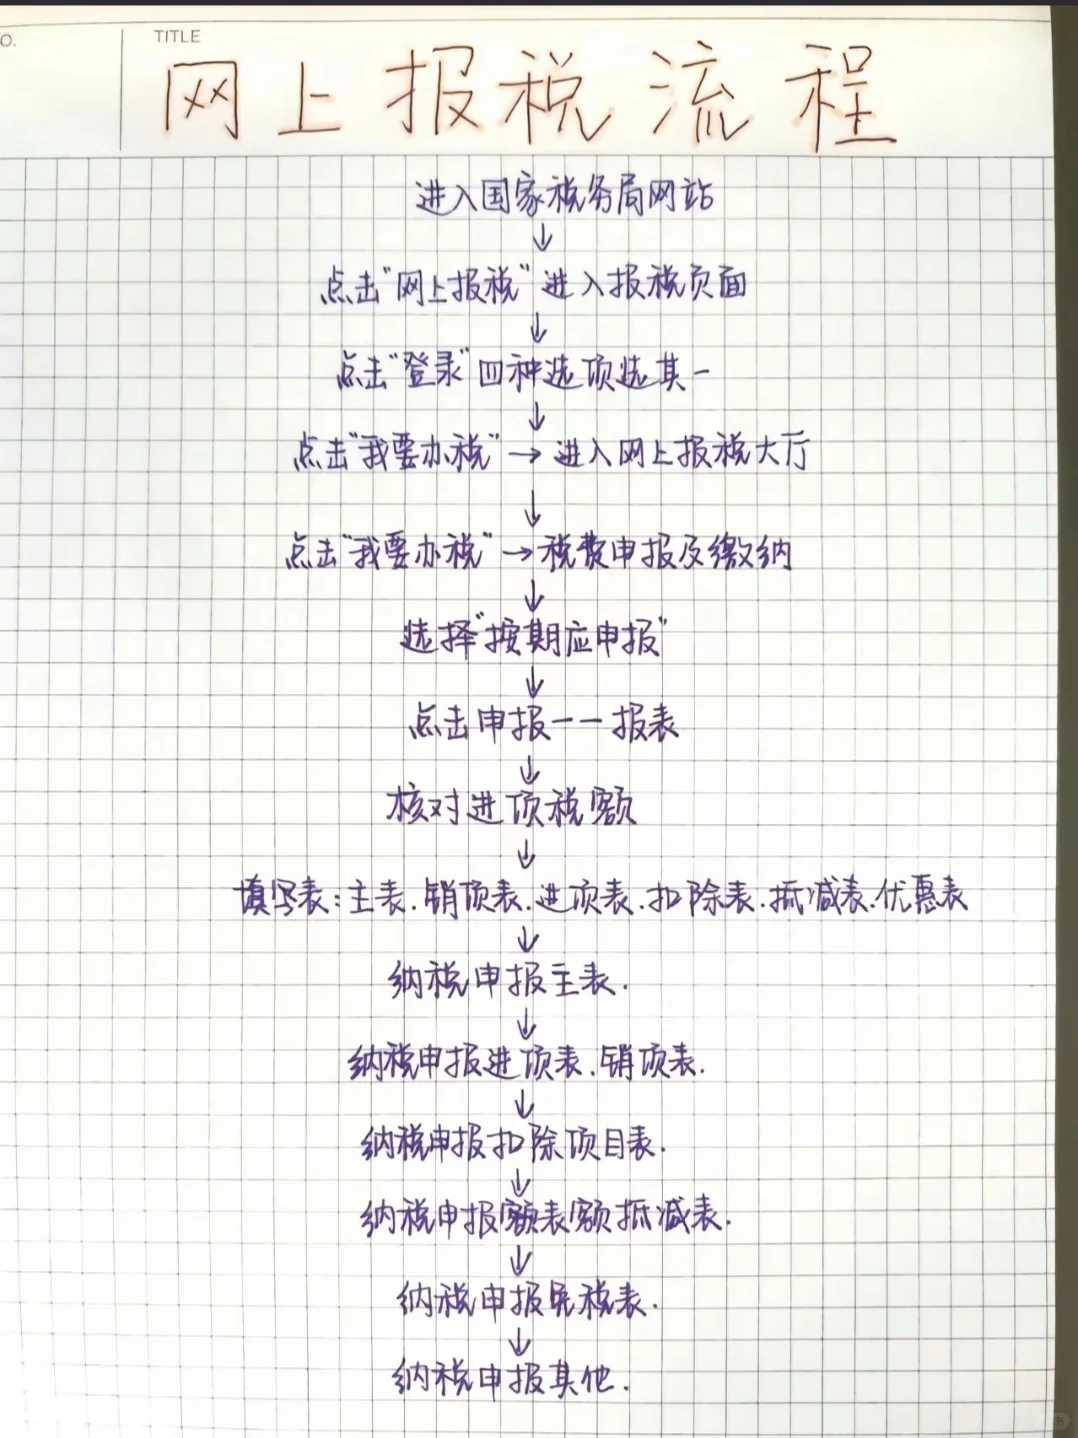 O.
TITLE
网上报税流程
进入国家税务局网站
↓
点击"网上报税"进入报税页面
↓
点击"登录"四种选项选其一
↓
点击"我要办税"→进入网上报税大厅
↓
点击"我要办税"→税费申报及缴纳
↓
选择"按期应申报"
↓
点击申报——报表
↓
核对进项税额
↓
填写表:主表.销项表.进项表.扣除表.抵减表.优惠表
↓
纳税申报主表.
↓
纳税申报进项表.销项表.
↓
纳税申报扣除项目表.
↓
纳税申报额表额抵减表.
↓
纳税申报免税表.
↓
纳税申报其他.